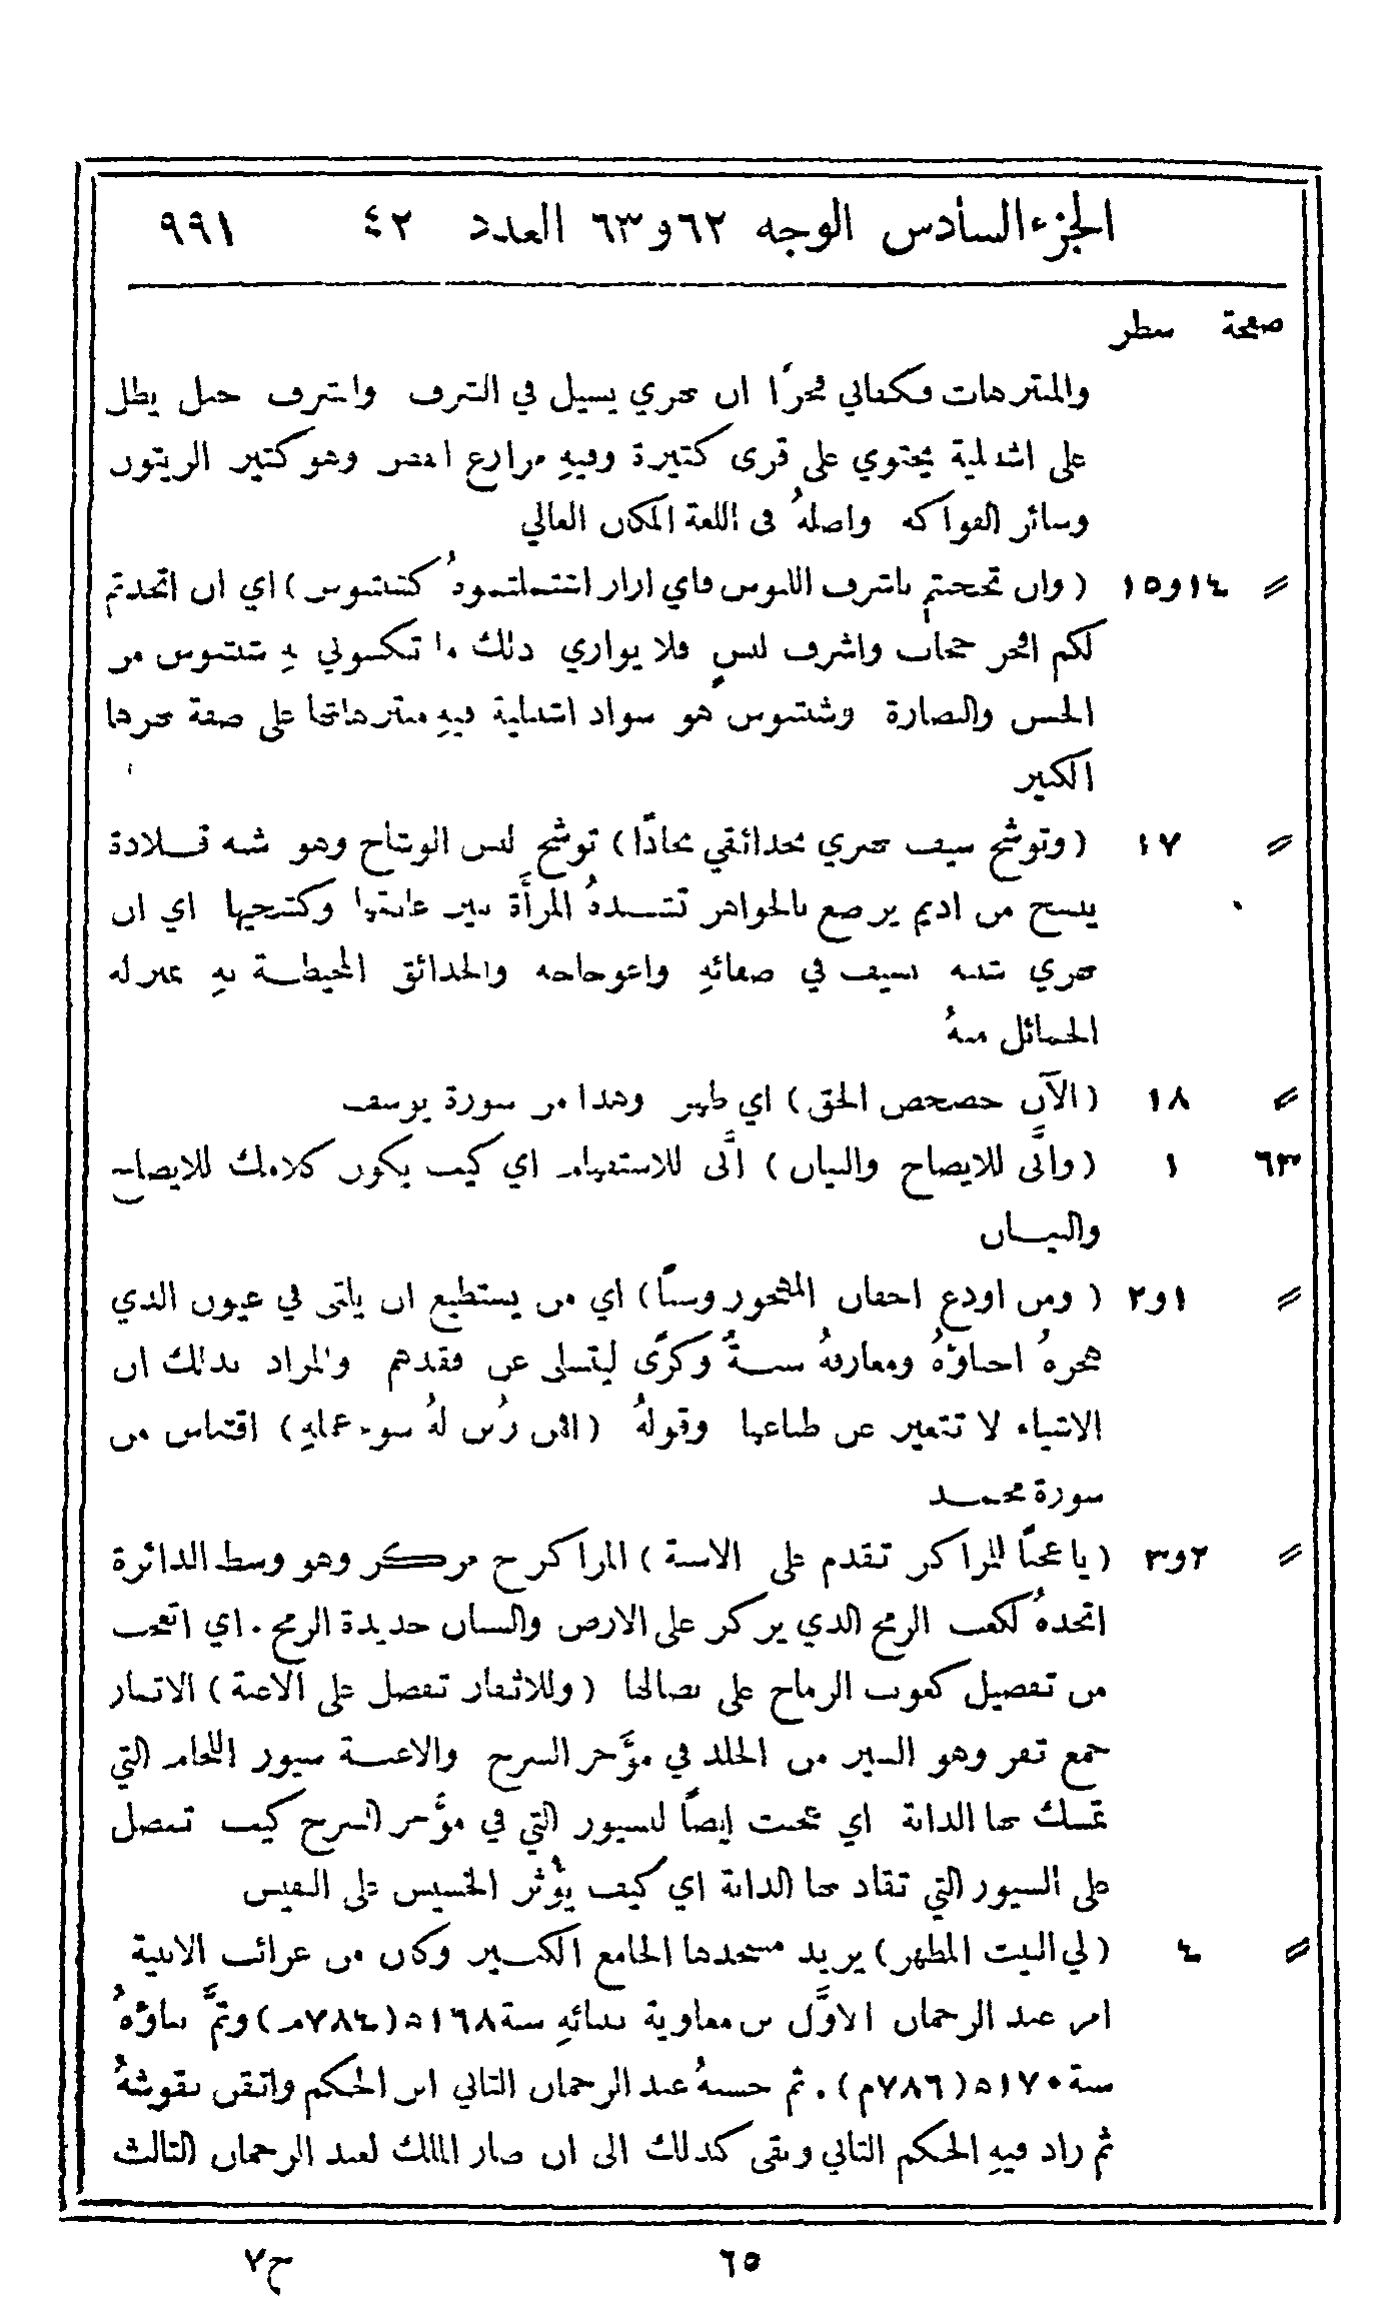 الجزء السادس الوجه ٦٢ و٦٣ العدد ٤٢ ٩٩١
صفحة سطر
والمنتزهات فكفاني فخرًا ان نهري يسيل في الشرف والشرف جبل يطل
على اشبيلية يحتوي على قرى كثيرة وفيهِ مزارع وهو كثير الزيتون
وسائر الفواكه واصلهُ في اللغة المكان العالي
〃 ١٤ و١٥ (وان تحجبتم باشرف اللبوس فاي ازار اشتملتموهُ كشنتبوس) اي ان اتخذتم
لكم افخر حجاب واشرف لبسٍ فلا يوازي ذلك ما تكسوني بهِ شنتبوس من
الحسن والنضارة وشنتبوس هو سواد اشبيلية فيهِ منتزهاتها على ضفة نهرها
الكبير
〃 ١٧ (وتوشح سيف نهري بحدائقي نجادًا) توشح لبس الوشاح وهو شبه قلادة
ينسج من اديم يرصع بالجواهر تشدهُ المرأَة بين عاتقها وكشحيها اي ان
نهري شبه بسيف في صفائهِ واعوجاجه والحدائق المحيطة بهِ بمنزلة
الحمائل منهُ
〃 ١٨ (الآن حصحص الحق) اي ظهر وهذا من سورة يوسف
٦٣ ١ (وانَّى للايضاح والبيان) انَّى للاستفهام اي كيف يكون كلامك للايضاح
والبيان
〃 ١ و٢ (ومن اودع اجفان المهجور وسنًا) اي من يستطيع ان يلقي في عيون الذي
هجرهُ احباؤهُ ومعارفهُ سنةً وكرًى ليتسلى عن فقدهم والمراد بذلك ان
الاشياء لا تتغير عن طباعها وقولهُ (افمن زُين لهُ سوء عملهِ) اقتباس من
سورة محمد
〃 ٢ و٣ (يا عجبًا للمراكز تقدم على الاسنة) المراكز ج مركز وهو وسط الدائرة
اتخذهُ لكعب الرمح الذي يركز على الارض والسنان حديدة الرمح . اي اتعجب
من تفضيل كعوب الرماح على نصالها (وللاثفار تفضل على الاعنة) الاثفار
جمع ثفر وهو السير من الجلد في مؤَخر السرج والاعنة سيور اللجام التي
تمسك بها الدابة اي عجبت ايضًا لسيور التي في مؤَخر السرج كيف تفضل
على السيور التي تقاد بها الدابة اي كيف يؤْثر الخسيس على النفيس
〃 ٤ (لي البيت المطهر) يريد مسجدها الجامع الكبير وكان من غرائب الابنية
امر عبد الرحمان الاوَّل بن معاوية ببنائهِ سنة ١٦٨ ه (٧٨٤ م) وتمَّ بناؤهُ
سنة ١٧٠ ه (٧٨٦ م) . ثم حسنهُ عبد الرحمان الثاني ابن الحكم واتقن نقوشهُ
ثم زاد فيهِ الحكم الثاني وبقي كذلك الى ان صار الملك لعبد الرحمان الثالث
٦٥ ح٧